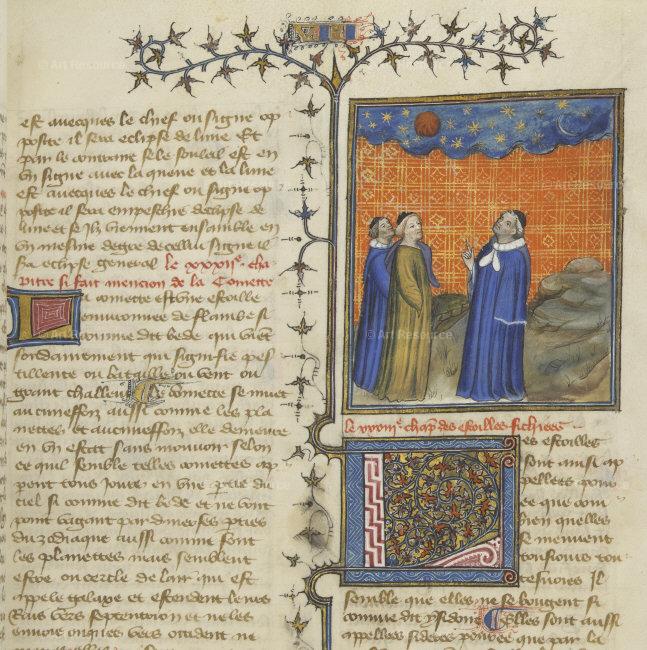 est auecques le chief ou signe op
posite il sera eclipse de lune Et
par le contraire se le souleil est en
un signe auec la queue et la lune
est auecques le chief ou signe op
posite il sera empeschie declipse de
lune et se ilz viennent ensamble en
un mesme degre de cellui signe il
sera eclipse general le xxxiie cha
pitre si fait mencion de la Comette
La comette est une estoille
enuironnee de flambe si
comme dit bede qui vient
soudainement qui signifie pes
tillence ou bataille ou vent ou
grant challeur Le comette se muet
aucuneffois aussi comme les pla
nettes et aucuneffois elle demeure
en un estat sans mouuoir selon
ce quil semble telles comettes ap
perent tous jours en une partie du
ciel si comme dit bede et ne vont
point vagant par diuerses parties
du zodiaque aussi comme font
les planettes mais semblent
estre ou cercle de lair qui est
appele galaxe et estendent leurs
Rais vers septentrion et ne les
enuoie onques vers occident ne
le xxxiiie chap des estoilles fichiees
Les estoilles
sont ainsi ap
pellees pour
ce que com
bien quelles
se meuuent
tousiours tou
tesuoies Il
semble que elles ne se bougent si
comme dit ysidore Elles sont aussi
appellees sideres pource que par la
© Art Resource
© Art Resource
© Art Resource
© Art Resource